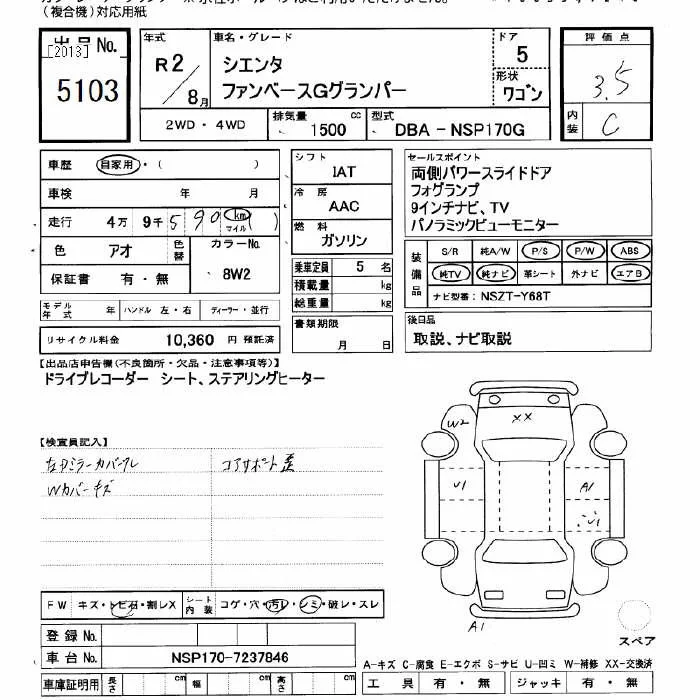 (複合機)対応用紙
出品No.
[2013]
5103
年式
R2/8月
車名・グレード
シエンタ
ファンベースGグランパー
ドア
5
形状
ワゴン
評価点
3.5
内装
C
2WD・4WD
排気量 1500 cc
型式 DBA - NSP170G
車歴 自家用・( )
車検 年 月
走行 4万 9千 590 km マイル ( )
色 アオ 色替 カラーNo. 8W2
保証書 有・無
モデル年式 年 ハンドル 左・右 ディーラー・並行
リサイクル料金 10,360 円 預託済
シフト
IAT
冷房
AAC
燃料
ガソリン
乗車定員 5 名
積載量 kg
総重量 kg
書類期限
月 日
セールスポイント
両側パワースライドドア
フォグランプ
9インチナビ、TV
パノラミックビューモニター
装備品
S/R 純A/W P/S P/W ABS
純TV 純ナビ 革シート 外ナビ エアB
ナビ型番: NSZT-Y68T
後日品
取説、ナビ取説
【出品店申告欄(不良箇所・欠品・注意事項等)】
ドライブレコーダー シート、ステアリングヒーター
【検査員記入】
左ドミラーカバーズレ
コアサポート歪
Wカバーキズ
W2
XX
U1
A1
U1
A1
スペア
FW キズ・トビ石・割レX
シート内装 コゲ・穴・汚レ・シミ・破レ・スレ
登録No.
車台No. NSP170-7237846
車庫証明用 長さ cm 幅 cm 高さ cm
A-キズ C-腐食 E-エクボ S-サビ U-凹ミ W-補修 XX-交換済
工具 有・無 ジャッキ 有・無